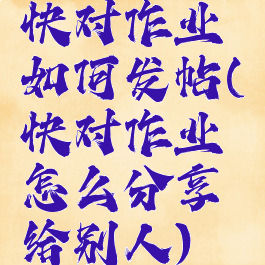 快对作业
如何发帖(
快对作业
怎么分享
给别人)